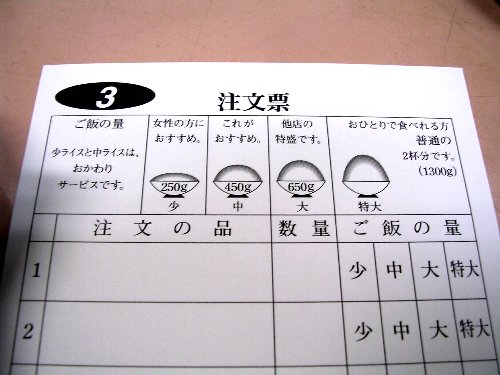 3
注文票
ご飯の量
少ライスと中ライスは、
おかわり
サービスです。
女性の方に
おすすめ。
250g
少
これが
おすすめ。
450g
中
他店の
特盛です。
650g
大
おひとりで食べれる方
普通の
2杯分です。
(1300g)
特大
注文の品 数量 ご飯の量
1 少 中 大 特大
2 少 中 大 特大